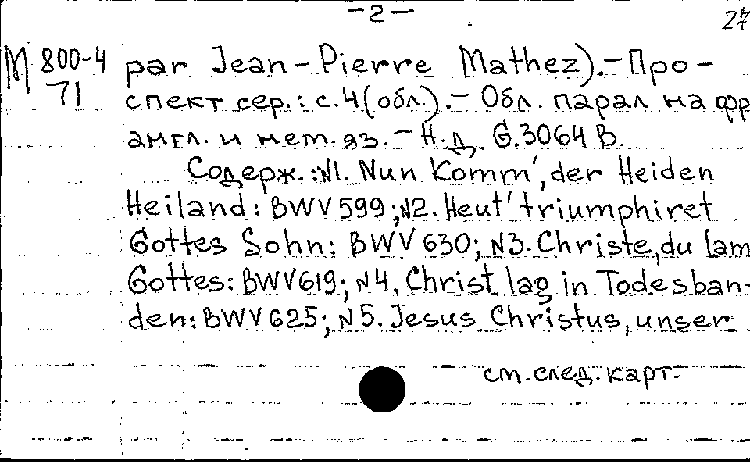 -2-
M 800-4 par Jean-Pierre Mathez).-Про-
71 спект сер.: с.4(обл.).- Обл. парал на фр
англ. и нем. яз. - Н.д. G.3064 B.
Содерж.: N1. Nun Komm', der Heiden
Heiland: BWV 599; N2. Heut' triumphiret
Gottes Sohn: BWV 630; N3. Christe, du Lam
Gottes: BWV 619; N4. Christ lag in Todesban-
den: BWV 625; N5. Jesus Christus, unser
см. след. карт.